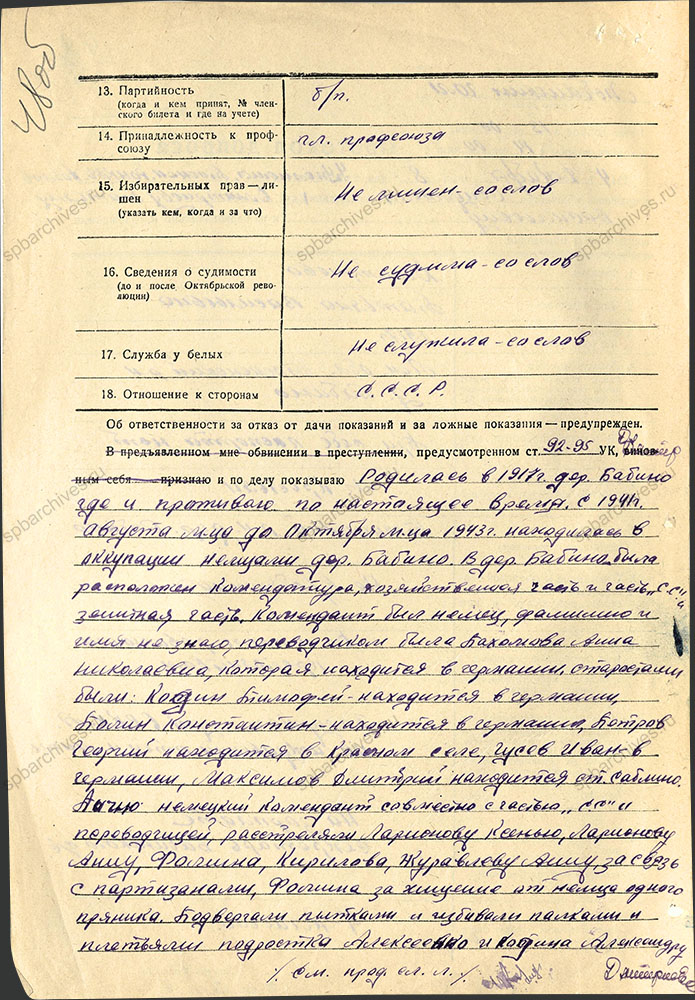 13. Партийность
(когда и кем принят, № член-
ского билета и где на учете)
б/п.
14. Принадлежность к проф-
союзу
чл. профсоюза
15. Избирательных прав — ли-
шен
(указать кем, когда и за что)
Не лишен - со слов
16. Сведения о судимости
(до и после Октябрьской рево-
люции)
Не судима - со слов
17. Служба у белых
Не служила - со слов
18. Отношение к сторонам
С.С.С.Р.
Об ответственности за отказ от дачи показаний и за ложные показания — предупрежден.
В предъявленном мне обвинении в преступлении, предусмотренном ст. 92-95 УК, винов-
ным себя признаю и по делу показываю Родилась в 1917 г. дер. Бабино
где и проживаю по настоящее время. С 1941 г.
августа м-ца до Октября м-ца 1943 г. находилась в
оккупации немцами дер. Бабино. В дер. Бабино была
расположен комендатура, хозяйственная часть и часть „СС"
зенитная часть. Комендант был немец, фамилию и
имя не знаю, переводчиком была Пахомова Анна
Николаевна, которая находится в германии. старостами
были: Кодин Тимофей - находится в германии,
Полин Константин - находится в германии, Петров
Георгий находится в Красном селе, Гусов Иван - в
германии, Максимов Дмитрий находится ст. Саблино.
Лично немецкий комендант совместно с частью „СС" и
переводчицей, расстреляли Ларионову Ксенью, Ларионову
Анну, Фомина, Кирилова, Журавлеву Анну за связь
с партизанами, Фомина за хищение от немца одного
пряника. Подвергали пытками и избивали палками и
плетьями подростка Алексеенко и Кодина Александру
/ см. прод. сл. л. /
spbarchives.ru
spbarchives.ru
spbarchives.ru
spbarchives.ru
spbarchives.ru
spbarchives.ru